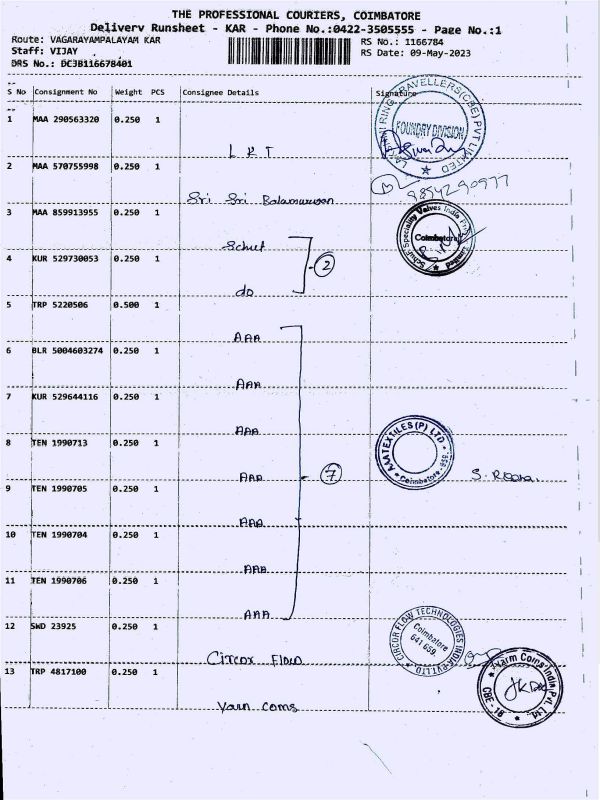 THE PROFESSIONAL COURIERS, COIMBATORE
Delivery Runsheet - KAR - Phone No.:0422-3505555 - Page No.:1
Route: VAGARAYAMPALAYAM KAR
RS No.: 1166784
Staff: VIJAY
RS Date: 09-May-2023
DRS No.: DCJB116678401
S No Consignment No Weight PCS Consignee Details Signature
1 MAA 290563320 0.250 1
L K T
FOUNDRY DIVISION
2 MAA 570755998 0.250 1
Sri Sri Balamurugan
3 MAA 859913955 0.250 1
Schuf
Schuf Speciality Valves India Private Limited
Coimbatore
4 KUR 529730053 0.250 1
do
2
5 TRP 5220506 0.500 1
AAA
6 BLR 5004603274 0.250 1
AAA
7 KUR 529644116 0.250 1
AAA
8 TEN 1990713 0.250 1
AAA
7
AAATEXTILES (P) LTD
Coimbatore - 659
9 TEN 1990705 0.250 1
AAA
10 TEN 1990704 0.250 1
AAA
11 TEN 1990706 0.250 1
AAA
12 SWD 23925 0.250 1
Circor Flow
CIRCOR FLOW TECHNOLOGIES INDIA PVT LTD
Coimbatore
641 659.
13 TRP 4817100 0.250 1
Yarn Coms
Yarm Coms India Pvt. Ltd.
CBE - 18